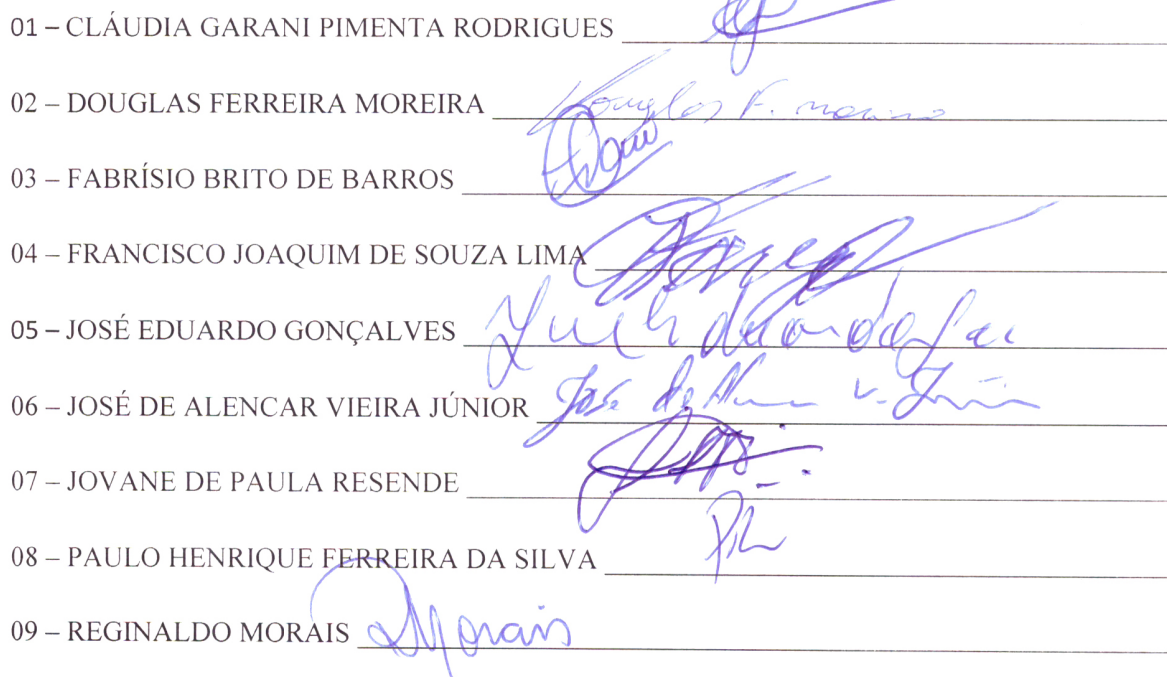 01 – CLÁUDIA GARANI PIMENTA RODRIGUES
02 – DOUGLAS FERREIRA MOREIRA Douglas F. Moreira
03 – FABRÍSIO BRITO DE BARROS
04 – FRANCISCO JOAQUIM DE SOUZA LIMA
05 – JOSÉ EDUARDO GONÇALVES
06 – JOSÉ DE ALENCAR VIEIRA JÚNIOR José de V. Júnior
07 – JOVANE DE PAULA RESENDE
08 – PAULO HENRIQUE FERREIRA DA SILVA
09 – REGINALDO MORAIS Morais